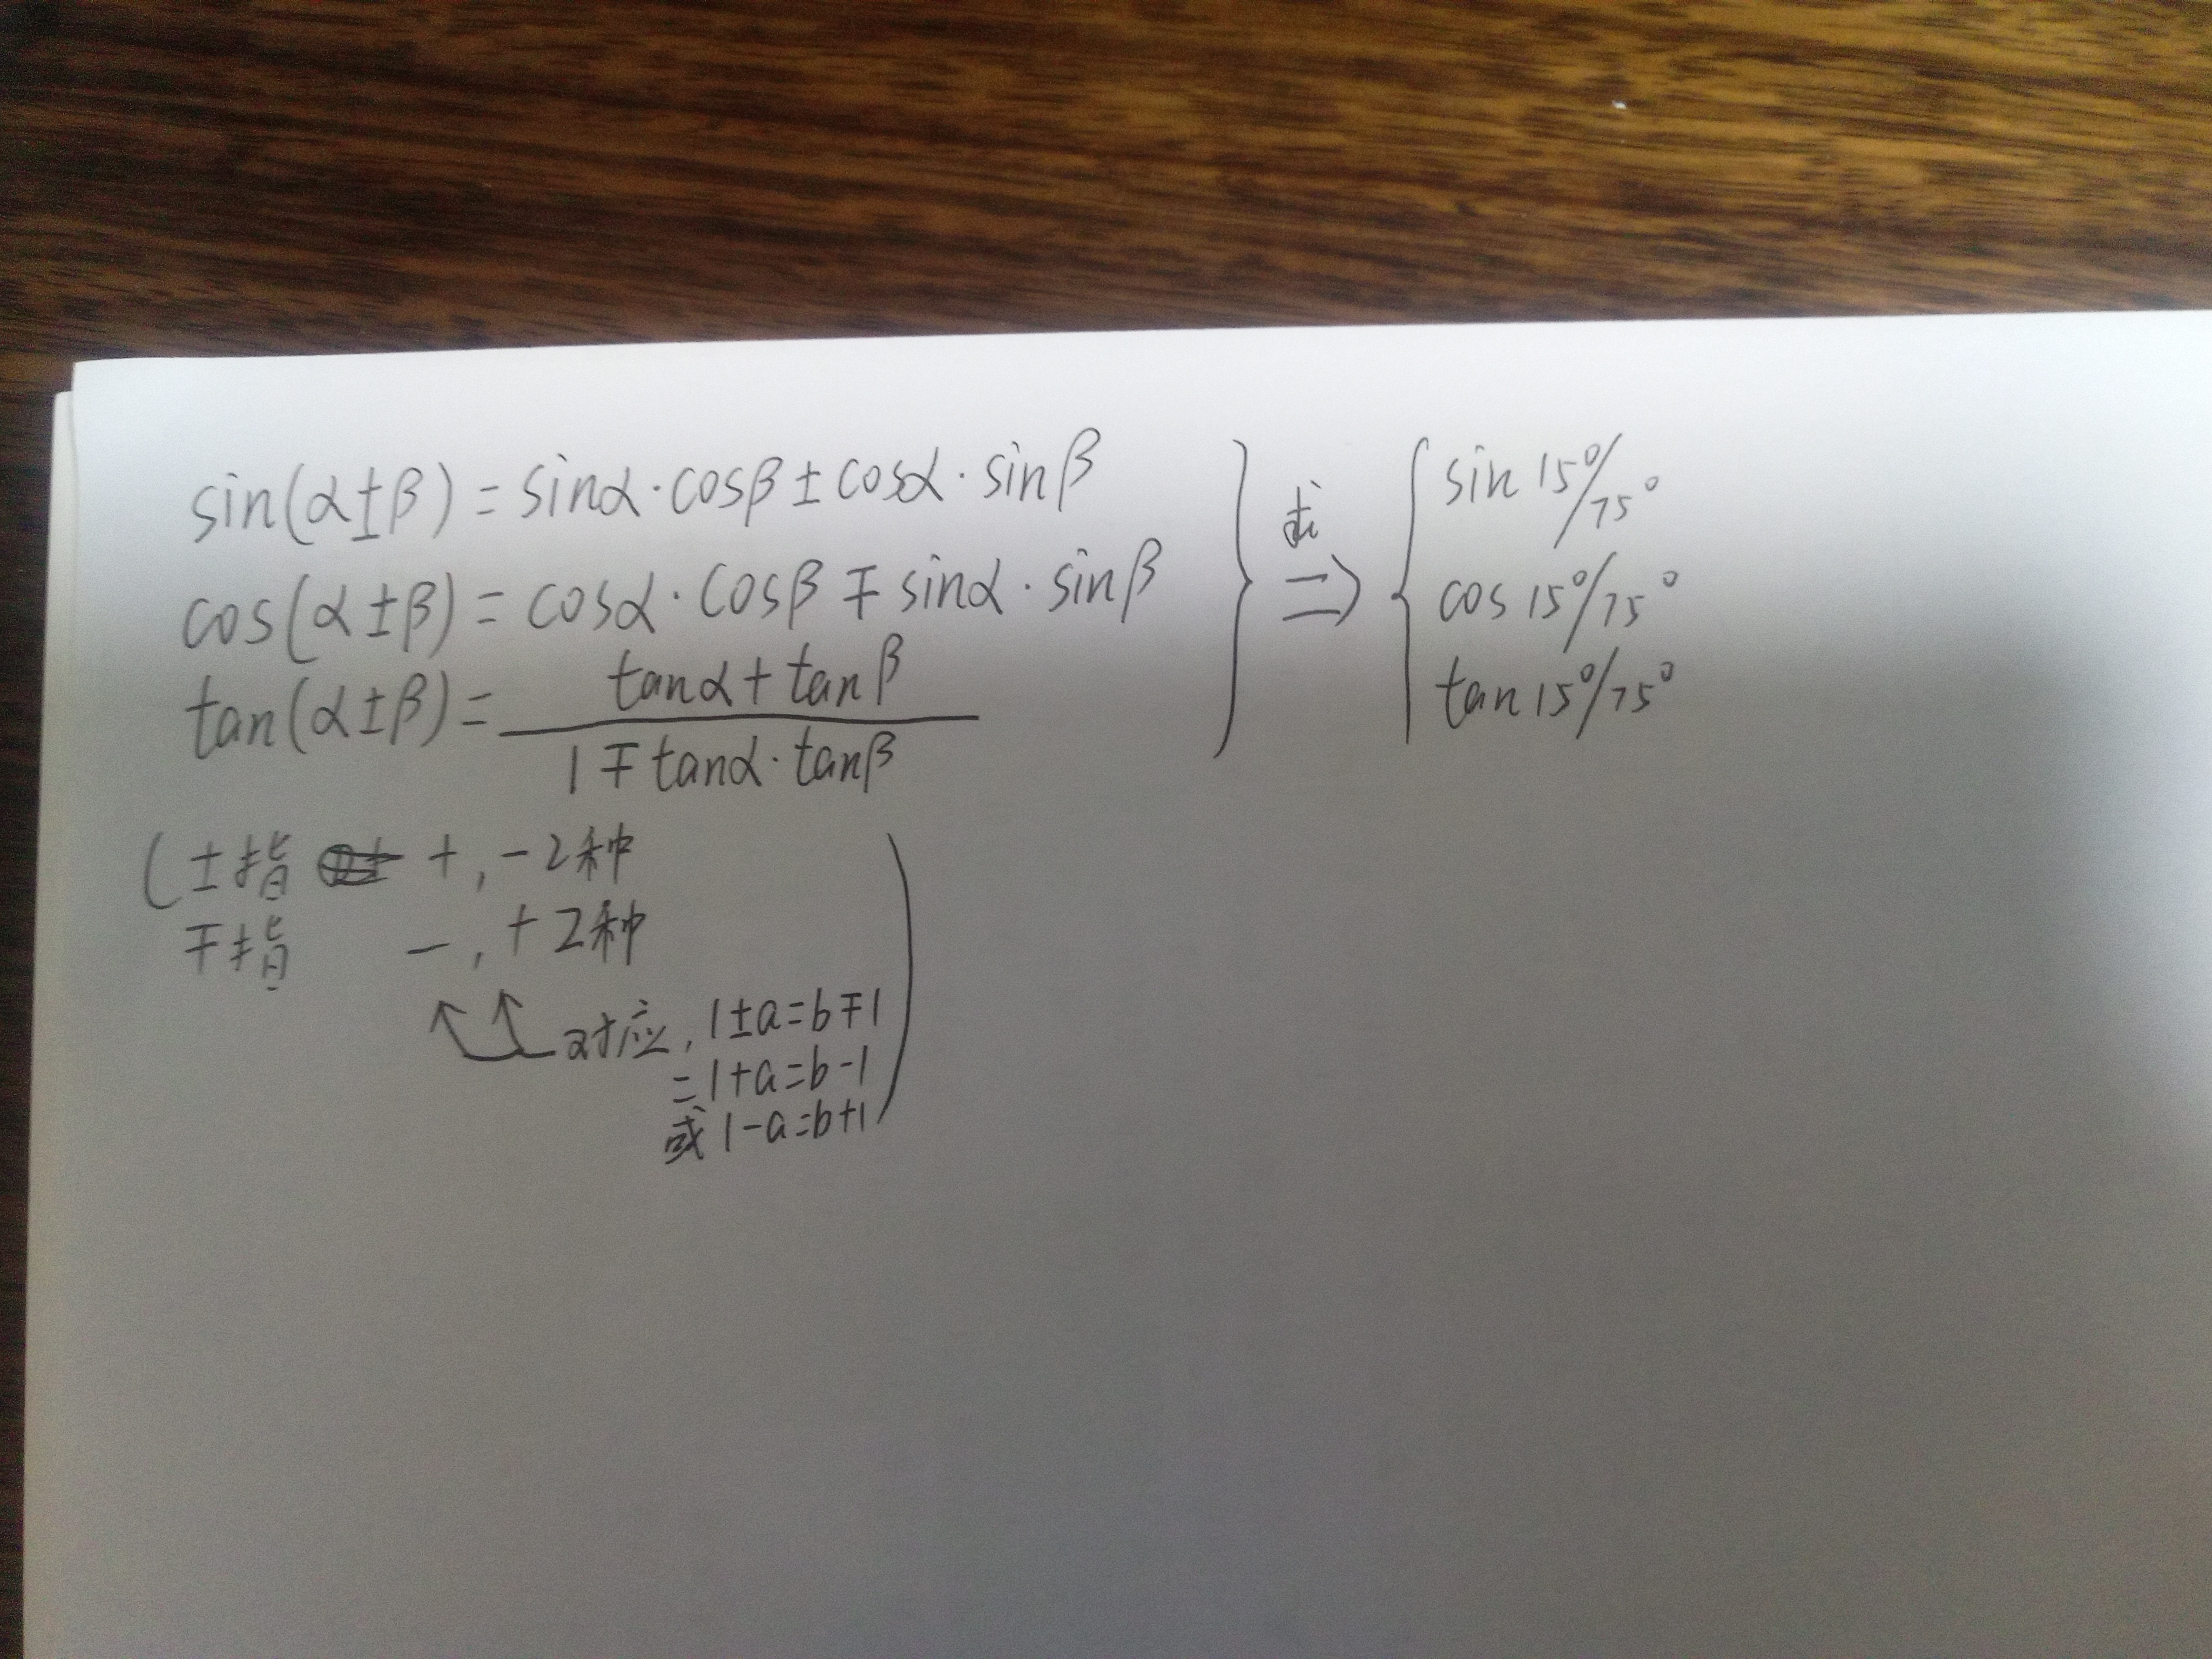 sin(α±β)=sinα·cosβ±cosα·sinβ
cos(α±β)=cosα·cosβ∓sinα·sinβ
tan(α±β)=
tanα+tanβ
1∓tanα·tanβ
求
⇒
sin15°/75°
cos15°/75°
tan15°/75°
(±指 +,-2种
∓指 -,+2种
对应,1±a=b∓1
=1+a=b-1
或1-a=b+1)